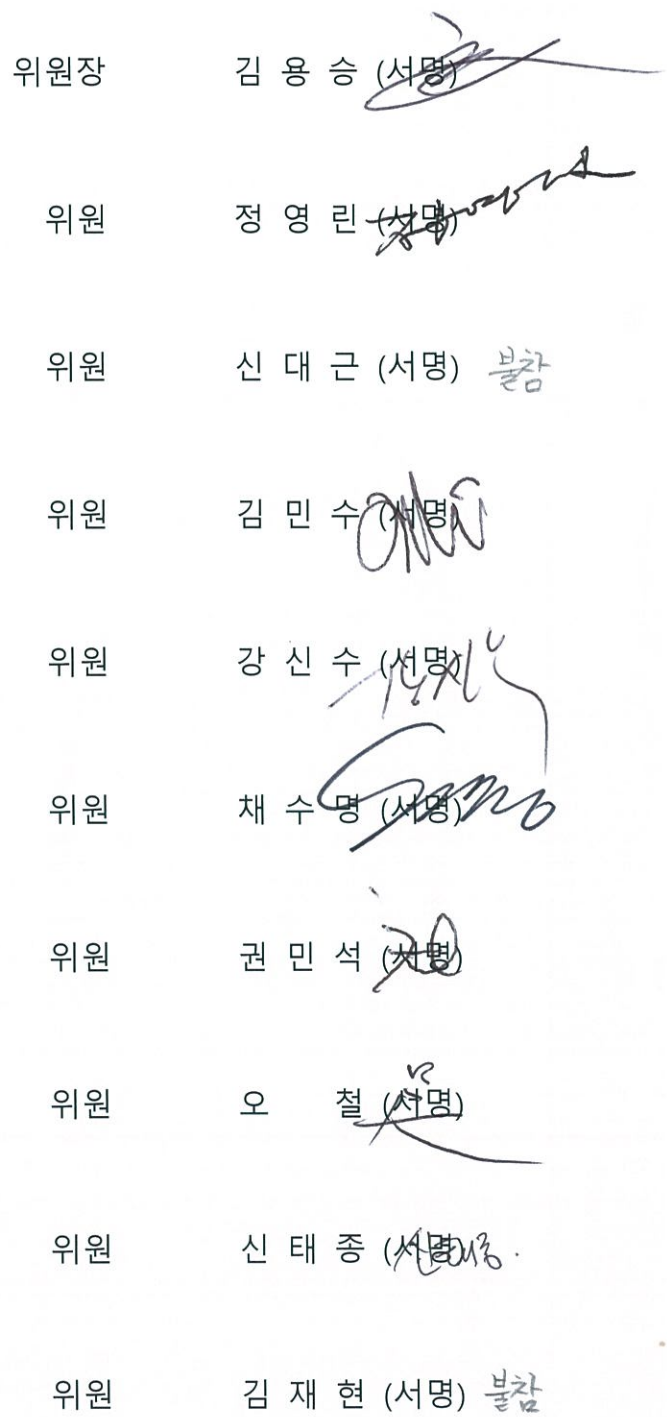 위원장 김 용 승 (서명)
위원 정 영 린 (서명)
위원 신 대 근 (서명) 불참
위원 김 민 수 (서명)
위원 강 신 수 (서명)
위원 채 수 명 (서명)
위원 권 민 석 (서명)
위원 오 철 (서명)
위원 신 태 종 (서명)
위원 김 재 현 (서명) 불참